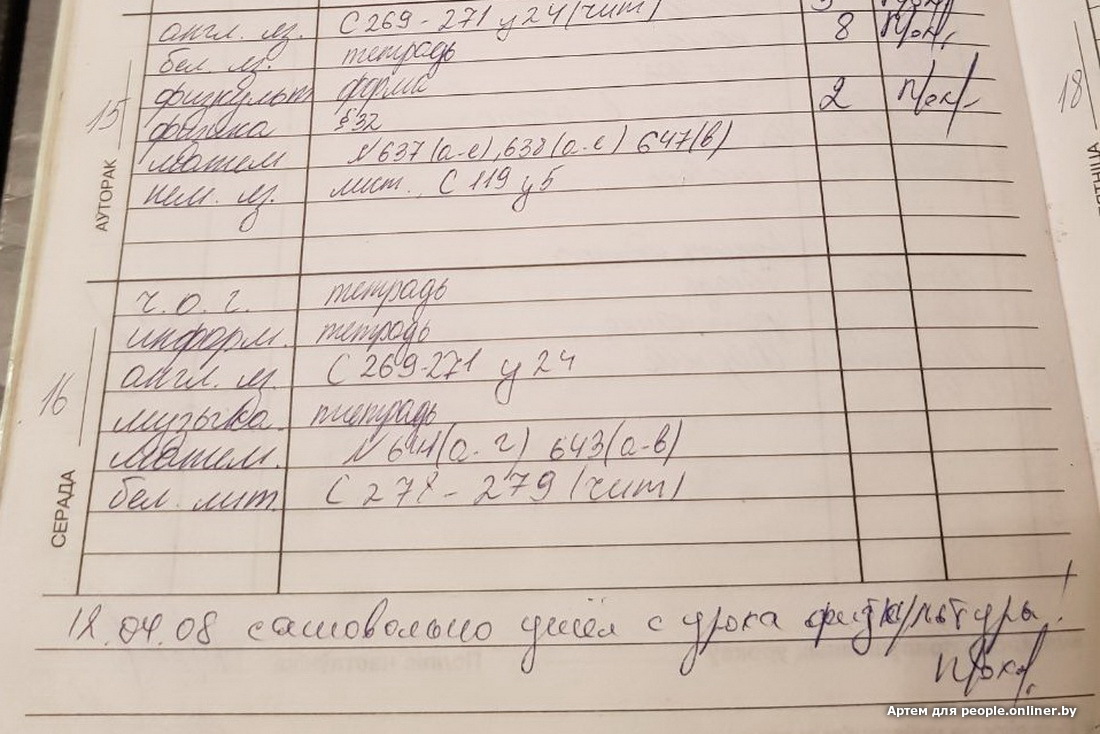 англ. яз. С 269-271 у 24 (чит)
бел. яз. тетрадь 8
физкульт форма
физика §32 2
матем N 637 (а-е), 638 (а-е) 647(в)
нем. яз. лит. С 119 у 5
15
АУТОРАК
18
ч.о.г. тетрадь
информ. тетрадь
англ. яз. С 269-271 у 24
музыка. тетрадь
матем. N 641(а-г) 643(а-в)
бел. лит. С 278-279 (чит)
16
СЕРАДА
12.04.08 самовольно ушёл с урока физкультуры!
Артем для people.onliner.by